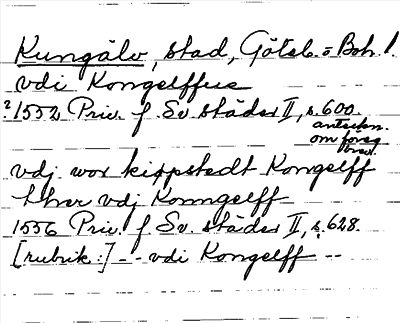 Kungälv, stad, Göteb. o Boh. l.
vdi Kongelffue
? 1552 Priv. f. Sv. städer II, s. 600.
anteckn.
om forsg
brev.
vdj wor kiøpstedt Kongelff
vdj Konngelff
1556 Priv. f. Sv. städer II, s. 628.
[rubrik:] -- vdi Kongelff --